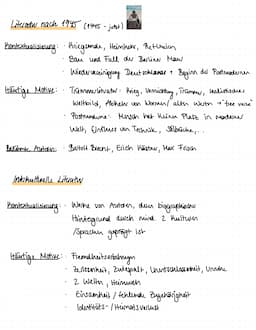 Literatur nach 1945 (1945 - jetzt)
Kontextualisierung: · Kriegsende, Heimkehr,
· Bau und Fall der Berliner Mauer
· Wiedervereinigung Deutschlands + Beginn der Postmoderne
Häufige Motive: · Trümmerliteratur: Krieg, Vernichtung, Trauma,
Weltbild, Abkehr von Normen/ alten Werten
· Postmoderne: Mensch hat keinen Platz in moderner
Welt, Einfluss von Technik,
Berühmte Autoren: · Bertolt Brecht, Erich Kästner, Max Frisch
Interkulturelle Literatur
Kontextualisierung: · Werke von Autoren, deren biographischer
Hintergrund durch mind. 2 Kulturen
/Sprachen geprägt ist
Häufige Motive: · Fremdheitserfahrungen
· Zerrissenheit, Zwiespalt, Unentschlossenheit, Unruhe
· 2 Welten, Heimweh
· Einsamkeit / fehlende Zugehörigkeit
· Identitäts-/Heimatverlust